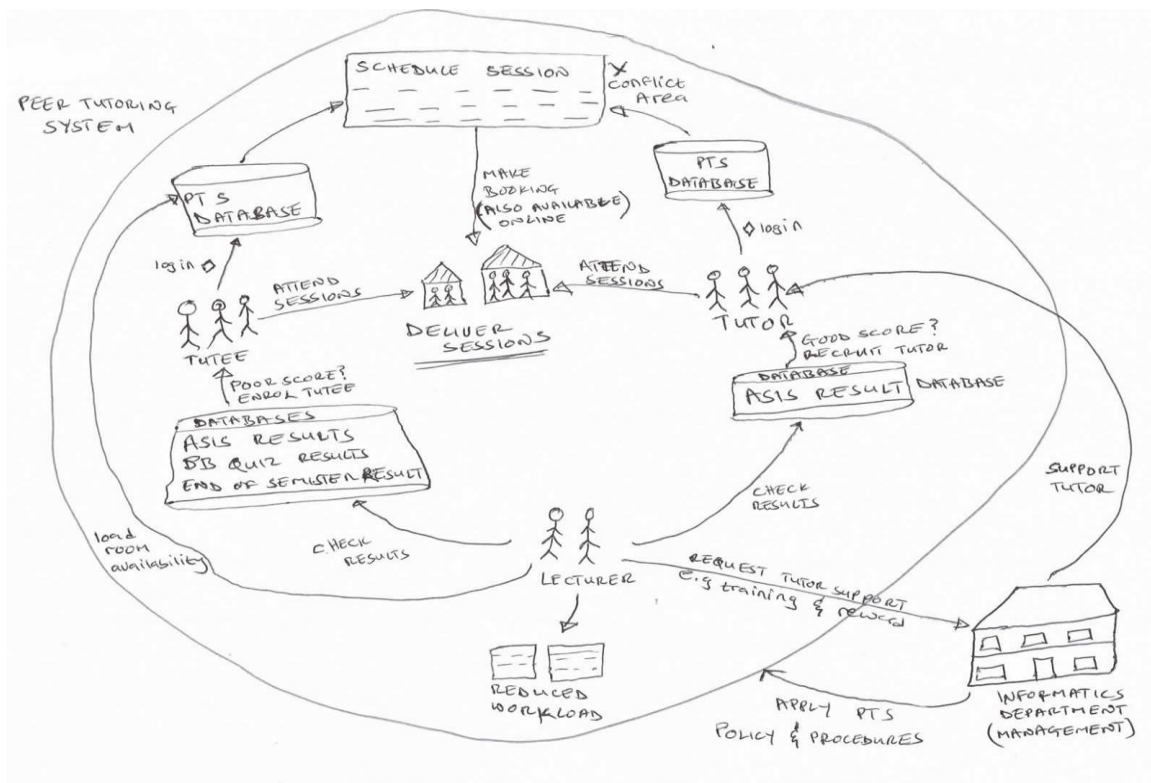 PEER TUTORING
SYSTEM
SCHEDULE SESSION
X
Conflict
Area
PTS
DATABASE
login
MAKE
BOOKING
(ALSO AVAILABLE)
ONLINE
PTS
DATABASE
login
ATTEND
SESSIONS
ATTEND
SESSIONS
TUTEE
DELIVER
SESSIONS
TUTOR
POOR SCORE?
ENROL TUTEE
GOOD SCORE?
RECRUIT TUTOR
DATABASES
ASIS RESULTS
BB QUIZ RESULTS
END OF SEMESTER RESULT
DATABASE
ASIS RESULT
DATABASE
load
room
availability
CHECK
RESULTS
CHECK
RESULTS
SUPPORT
TUTOR
LECTURER
REQUEST TUTOR SUPPORT
e.g training & reward
REDUCED
WORKLOAD
APPLY PTS
POLICY & PROCEDURES
INFORMATICS
DEPARTMENT
(MANAGEMENT)